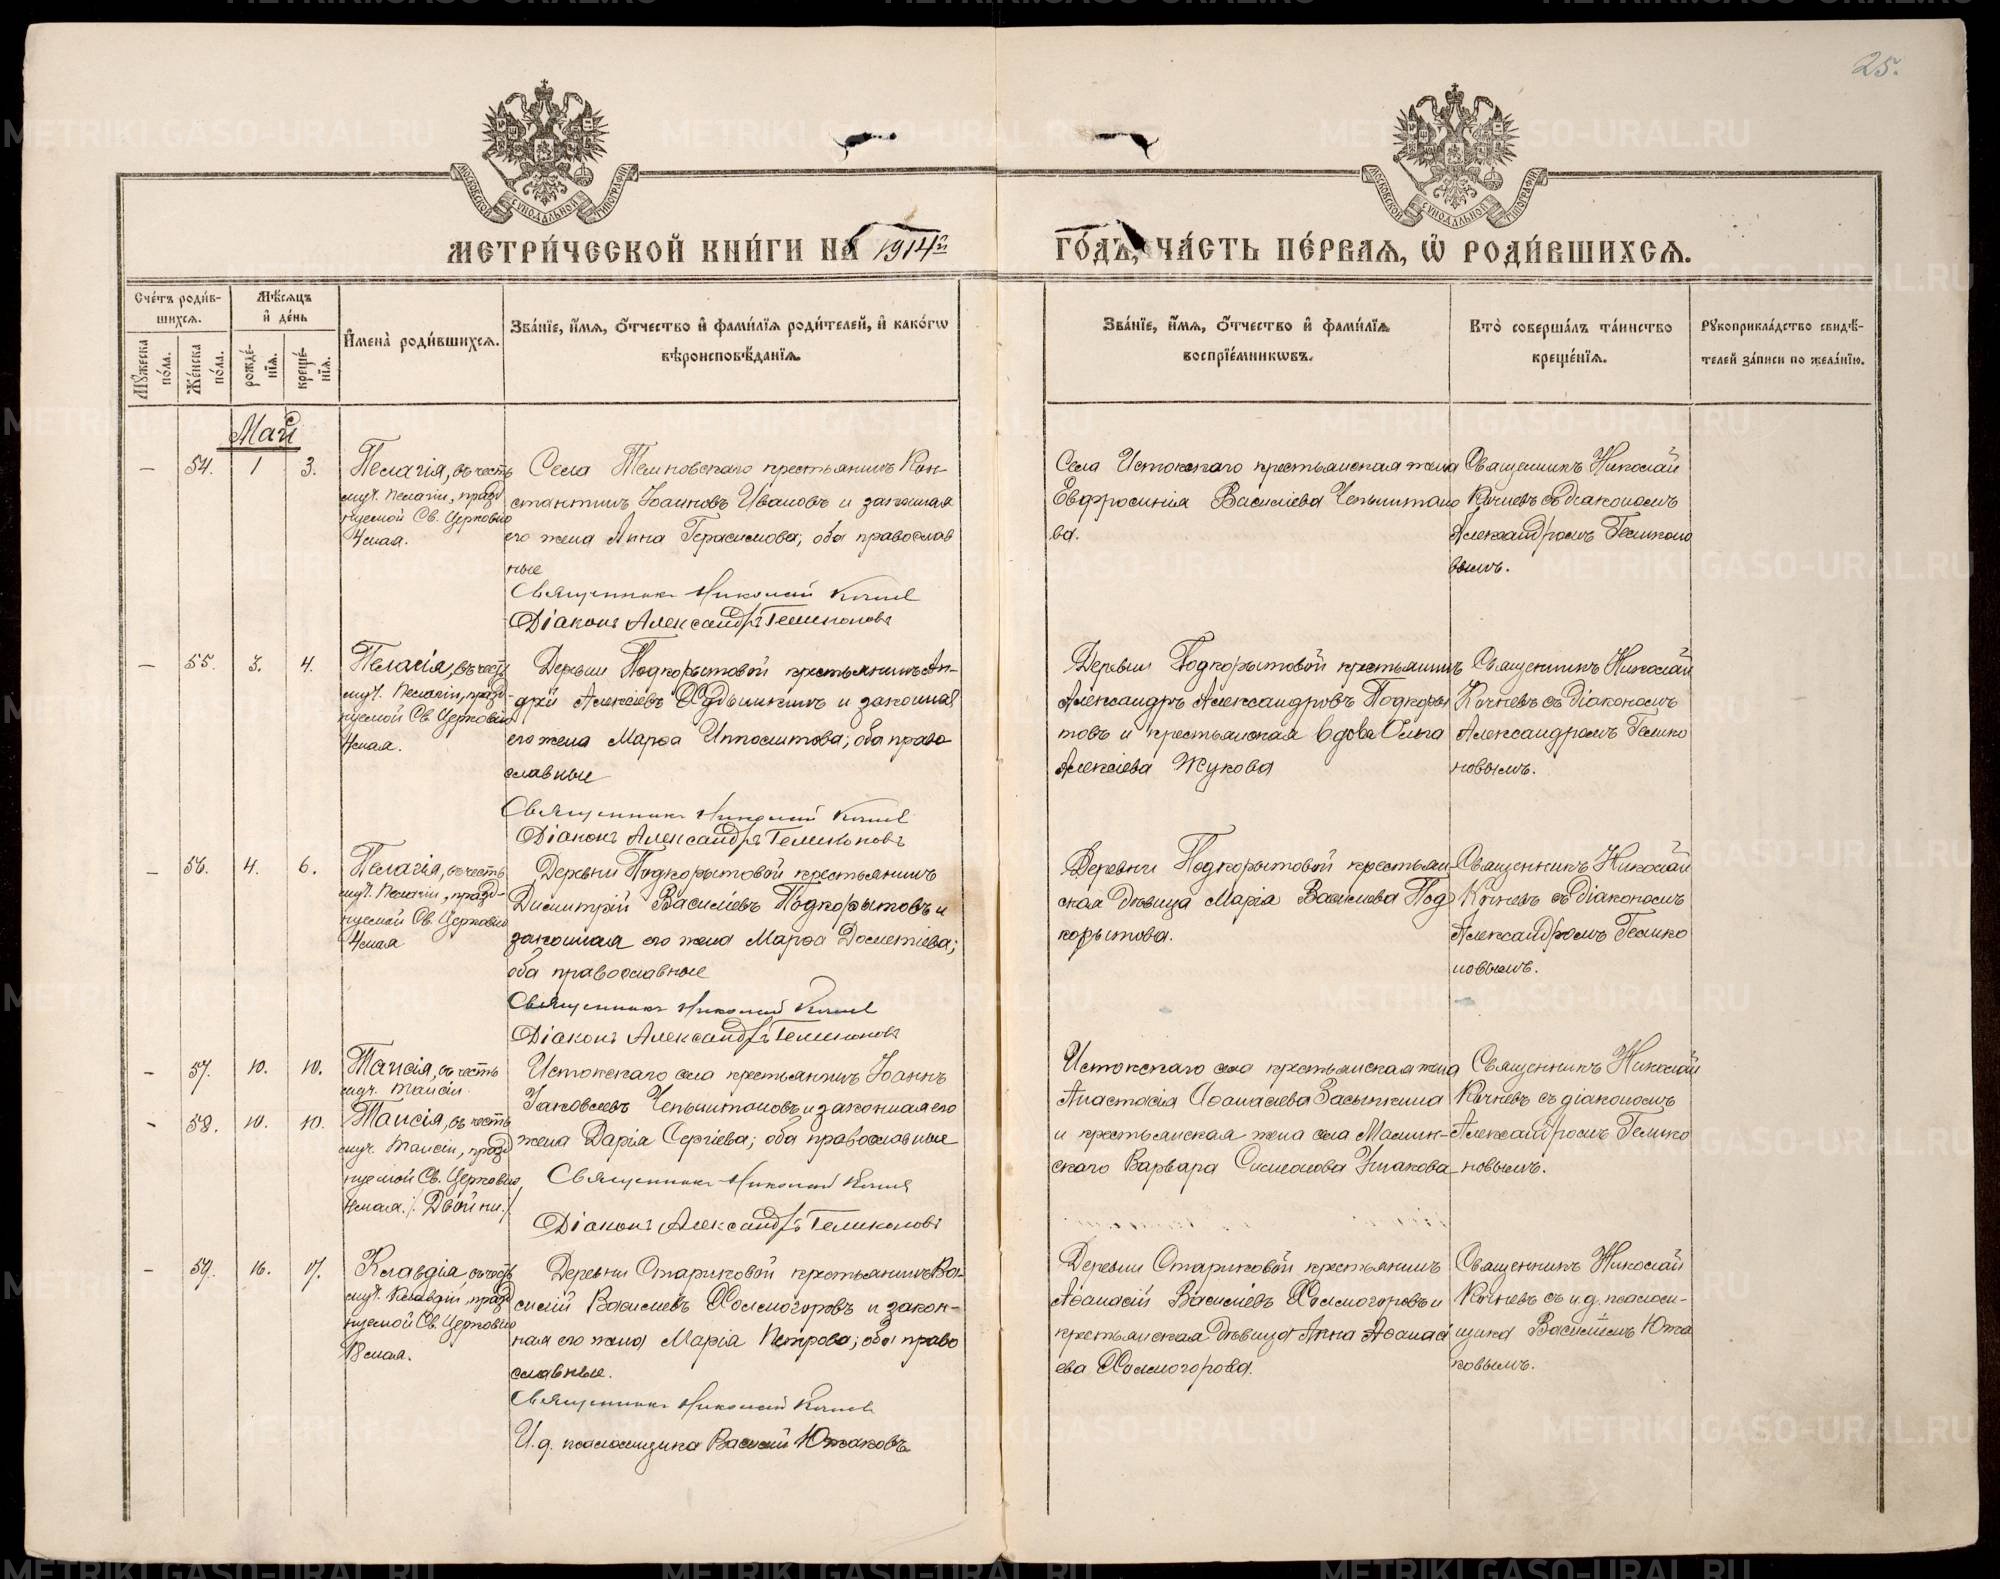 25.
МОСКОВСКОЙ СУНОДАЛЬНОЙ ТИПОГРАФІИ
МОСКОВСКОЙ СУНОДАЛЬНОЙ ТИПОГРАФІИ
МЕТРИ́ЧЕСКОЙ КНИ́ГИ НА 1914й ГО́ДЪ, ЧА́СТЬ ПЕ́РВАЯ, Ѡ РОДИ́ВШИХСЯ.
Сче́тъ роди́в-
шихся.
Мѣ́сяцъ
и де́нь
Мꙋ́жеска
по́ла.
Же́нска
по́ла.
рожде́-
нїя.
креще́-
нїя.
Имена̀ роди́вшихся.
Зва́нїе, и́мя, ѻ́тчество и фами́лїя роди́телей, и како́гѡ
вѣроисповѣ́данїя.
Зва́нїе, и́мя, ѻ́тчество и фами́лїя
воспрїе́мникѡвъ.
Кто̀ соверша́лъ та́инство
креще́нїя.
Рꙋкоприкла́дство свидѣ́-
телей за́писи по жела́нїю.
Май
— 54. 1 3.
Пелагія, въ честь
муч. Пелагіи, празд
нуемой Св. Церковію
4 мая.
Села Темновскаго крестьянинъ Кон-
стантинъ Іоанновъ Ивановъ и законная
его жена Анна Герасимова; оба православ
ные
Священникъ Николай Кочнев
Діаконъ Александръ Геликоновъ
Села Истокскаго крестьянская жена
Евфросинія Василіева Чепыштано
ва.
Священникъ Николай
Кочневъ съ діакономъ
Александромъ Гелико
новымъ.
— 55. 3. 4.
Пелагія, въ честь
муч. Пелагіи, празд-
нуемой Св. Церковію
4 мая.
Деревни Подкорытовой крестьянинъ Ан-
дрей Алексіевъ и законная
его жена Марѳа Ипполитова; оба право
славные
Священникъ Николай Кочнев
Діаконъ Александръ Геликоновъ
Деревни Подкорытовой крестьянинъ
Александръ Александровъ Подкоры
товъ и крестьянская вдова Ольга
Алексіева Жукова
Священникъ Николай
Кочневъ съ діакономъ
Александромъ Гелико
новымъ.
— 56. 4. 6.
Пелагія, въ честь
муч. Пелагіи, празд-
нуемой Св. Церковію
4 мая
Деревни Подкорытовой крестьянинъ
Димитрій Василіевъ Подкорытовъ и
законная его жена Марѳа Дометіева;
оба православные
Священникъ Николай Кочнев
Діаконъ Александръ Геликоновъ
Деревни Подкорытовой крестьян-
ская дѣвица Марія Василіева Под
корытова.
Священникъ Николай
Кочневъ съ діакономъ
Александромъ Гелико
новымъ.
— 57. 10. 10.
Таисія, въ честь
муч. Таисіи.
— 58. 10. 10.
Таисія, въ честь
муч. Таисіи, празд
нуемой Св. Церковію
мая. /: Двойни :/
Истокскаго села крестьянинъ Іоаннъ
Іаковлевъ Чепыштановъ и законная его
жена Дарія Сергіева; оба православные
Священникъ Николай Кочнев
Діаконъ Александръ Геликоновъ
Истокскаго села крестьянская жена
Анастасія Аѳанасіева Засыпкина
и крестьянская жена села Мамин-
скаго Варвара Симеонова Ушакова
Священникъ Николай
Кочневъ съ діакономъ
Александромъ Гелико
новымъ.
— 59. 16. 17.
Клавдія, въ честь
муч. Клавдіи, празд
нуемой Св. Церковію
18 мая.
Деревни Стариковой крестьянинъ Ва-
силій Василіевъ Холмогоровъ и закон-
ная его жена Марія Петрова; оба право
славные.
Священникъ Николай Кочнев
И. д. псаломщика Василій Южаковъ
Деревни Стариковой крестьянинъ
Аѳанасій Василіевъ Холмогоровъ и
крестьянская дѣвица Анна Аѳанасі
ева Холмогорова.
Священникъ Николай
Кочневъ съ и. д. псалом-
щика Василіемъ Южа
ковымъ.
METRIKI.GASO-URAL.RU